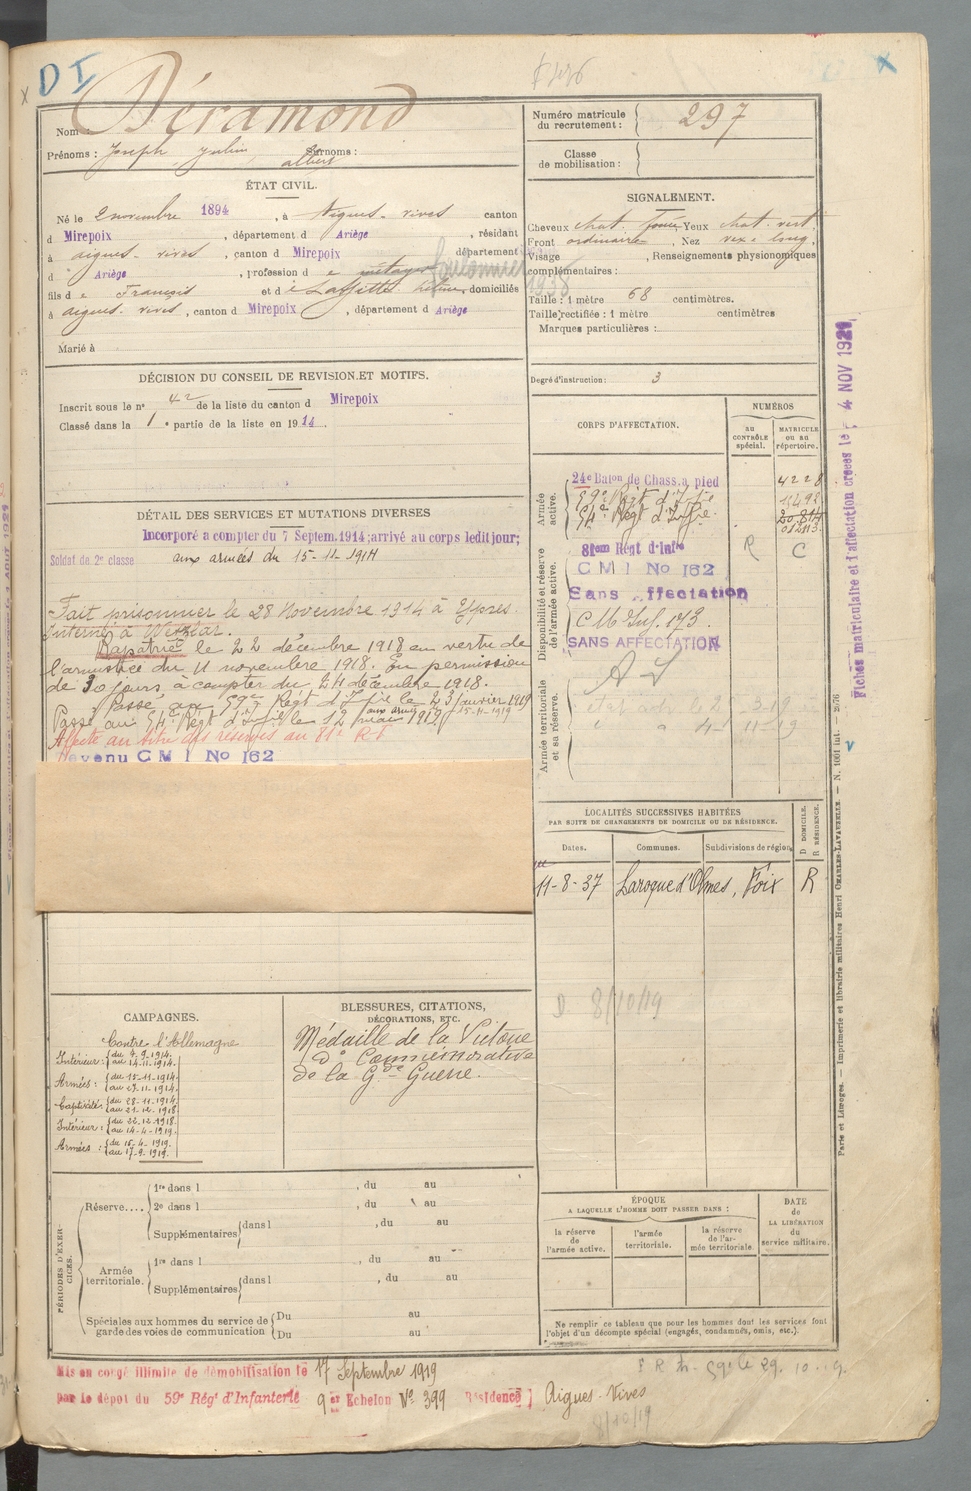 D I
Nom Déramond
Prénoms : Joseph, Julien Surnoms :
albert
ÉTAT CIVIL.
Né le 2 novembre 1894, à Aigues-vives canton
d Mirepoix, département d Ariège, résidant
à aigues-vives, canton d Mirepoix département
d Ariège, profession d e métayer foulonnier
fils de François et de Laffitte domiciliés
à aigues-vives, canton d Mirepoix, département d Ariège
Marié à
DÉCISION DU CONSEIL DE REVISION ET MOTIFS.
Inscrit sous le n° 42 de la liste du canton d Mirepoix
Classé dans la 1e partie de la liste en 1914.
DÉTAIL DES SERVICES ET MUTATIONS DIVERSES
Incorporé a compter du 7 Septem.1914; arrivé au corps ledit jour;
Soldat de 2e classe aux armées du 15-11-1914
Fait prisonnier le 28 Novembre 1914 à Ypres.
Interné à Wetzlar.
Rapatrié le 22 décembre 1918 en vertu de
l'armistice du 11 novembre 1918. En permission
de 30 jours, à compter du 24 décembre 1918.
Passé au 59e Régt d'Ifie le 23 janvier 1919
Passé au 54e Régt d'Ifie le 12 mai 1919
Affecté au titre des réserves au 81e R.I
Devenu C M I No 162
CAMPAGNES.
Contre l'Allemagne
Intérieur : du 7.9.1914. au 14-11-1914.
Armées : du 15-11-1914. au 27.11-1914.
Captivité : du 28-11-1914. au 21.12.1918.
Intérieur : du 22.12.1918. au 14-4-1919.
Armées : du 15-4-1919. au 17.9.1919.
BLESSURES, CITATIONS,
DÉCORATIONS, ETC.
Médaille de la Victoire
do Commémorative
de la Gde Guerre.
PÉRIODES D'EXERCICES.
Réserve.... 1re dans l , du au
2e dans l , du au
Supplémentaires dans l , du au
Armée territoriale. 1re dans l , du au
Supplémentaires dans l , du au
Spéciales aux hommes du service de garde des voies de communication Du au
Du au
Mis en congé illimité de démobilisation le 17 Septembre 1919
par le dépot du 59e Rég' d'Infanterie 9e Echelon No 399 Résidence Aigues-Vives
8/10/19
Numéro matricule du recrutement : 297
Classe de mobilisation :
SIGNALEMENT.
Cheveux chat. foncé, Yeux chat. vert,
Front ordinaire, Nez vexe long,
Visage , Renseignements physionomiques
complémentaires :
1938
Taille : 1 mètre 68 centimètres.
Taille rectifiée : 1 mètre centimètres
Marques particulières :
Degré d'instruction : 3
CORPS D'AFFECTATION.
NUMÉROS
AU CONTRÔLE spécial.
MATRICULE OU AU répertoire.
Armée active.
24e Baton de Chass. a pied 4228
59e Régt d'Ifie 11492
54e Régt d'Iffie.
Disponibilité et réserve de l'armée active.
81eme Régt d'Infie R C
C M I No 162
Sans affectation
C M Inf. 173.
SANS AFFECTATION
Armée territoriale et sa réserve.
A S
LOCALITÉS SUCCESSIVES HABITÉES
PAR SUITE DE CHANGEMENTS DE DOMICILE OU DE RÉSIDENCE.
Dates. Communes. Subdivisions de région. D DOMICILE. R RÉSIDENCE.
11-8-37 Laroque d'Olmes, Foix R
D 8/10/19
ÉPOQUE
A LAQUELLE L'HOMME DOIT PASSER DANS :
la réserve de l'armée active.
l'armée territoriale.
la réserve de l'armée territoriale.
DATE de LA LIBÉRATION du service militaire.
Ne remplir ce tableau que pour les hommes dont les services font
l'objet d'un décompte spécial (engagés, condamnés, omis, etc.).
Fiches matriculaire et d'affectation créées le 4 NOV 1921
Paris et Limoges. — Imprimerie et librairie militaires Henri CHARLES-LAVAUZELLE. — N. 1001 int. — 2.76